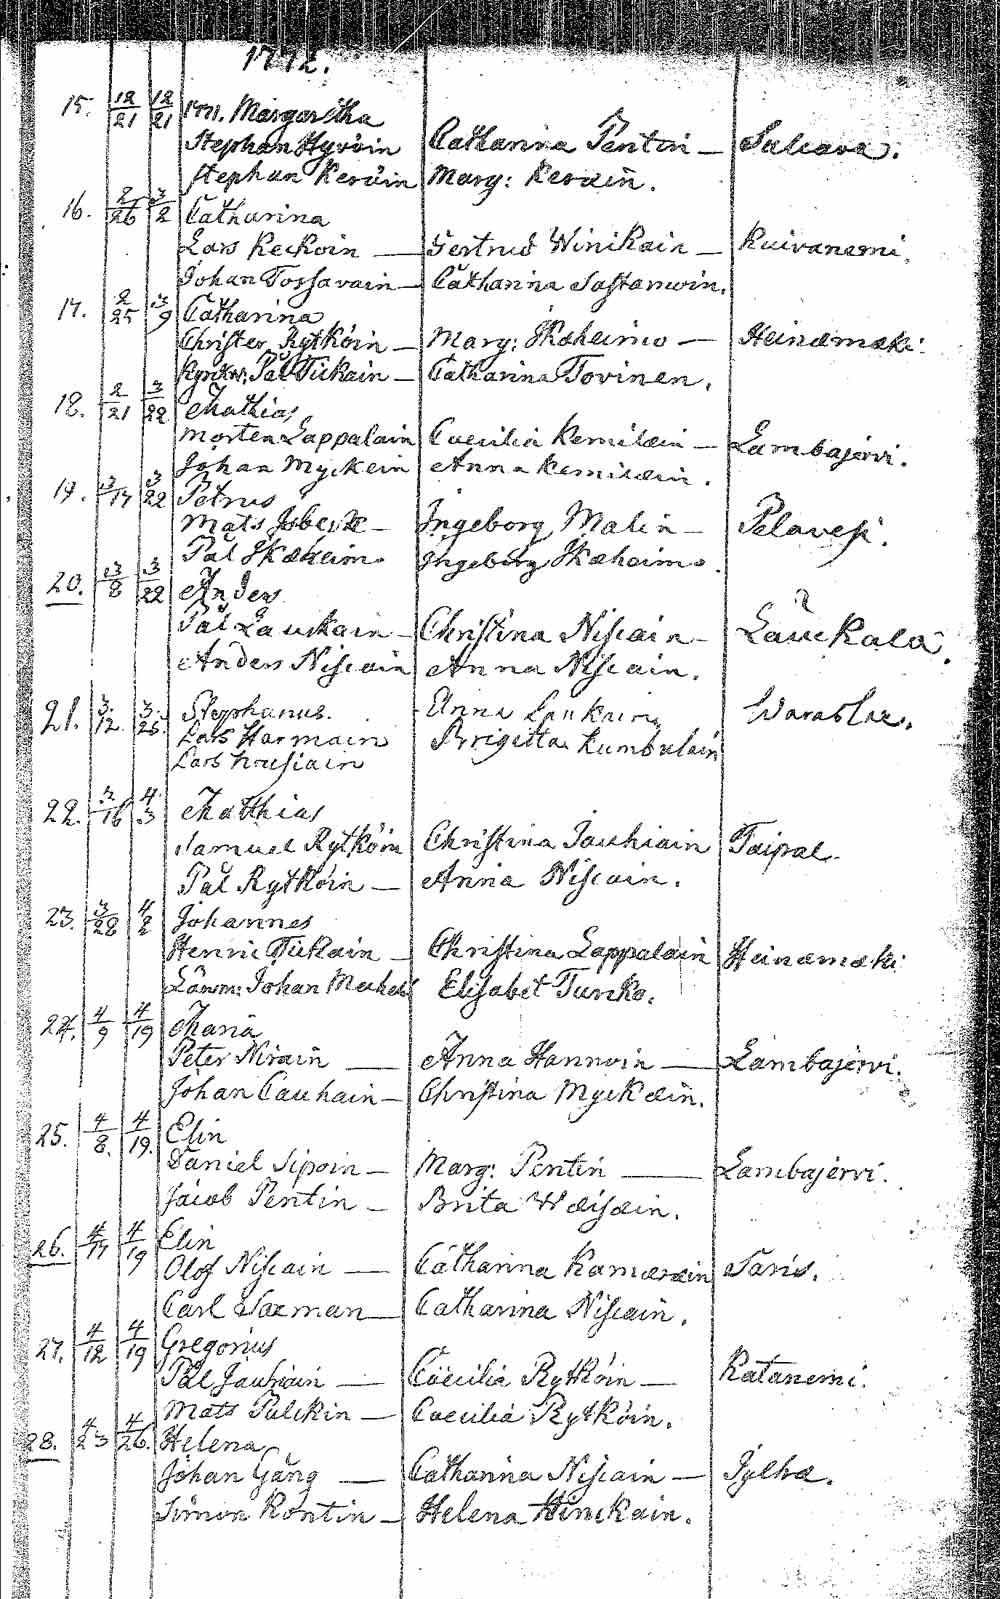 1772.
15. 12/21 12/21 1771. Margaretha
Stephan Hyvöin Catharina Pentin — Salevara.
Stephan Keräin Marg: Keräin.
16. 2/26 3/2 Catharina
Lars Keckoin — Gertrud Winikain — Kuivanemi.
Johan Tossavain — Catharina Sastamoin.
17. 2/25 3/9 Catharina
Christer Rytköin — Marg: Skæheimo — Heinæmæki.
Pål Tikain — Catharina Tovinen.
18. 2/21 3/22 Mathias
Morten Lappalain Caecilia Kemilæin — Lambajervi.
Johan Myckein Anna Kemilæin.
19. 3/17 3/22 Petrus
Mats — Ingeborg Malin — Pelavesi.
Pål Skæheimo Ingeborg Skæheimo.
20. 3/8 3/22 Anders
Pål Lauckain — Christina Niscain — Lauckala.
Anders Niscain Anna Niscain.
21. 3/12. 3/25. Stephanus. Anna Laukain Waraslax.
Lars Harmain Brigitta Kumbulain
Lars
22. 3/16 4/3 Matthias
Samuel Rytköin Christina Jauhiain Taipal.
Pål Rytköin — Anna Niscain.
23. 3/28 4/2 Johannes
Henric Tikain — Christina Lappalain Heinæmæki
Länsm: Johan Elisabet Tursko.
24. 4/9 4/19 Maria
Peter Nirain — Anna Hannoin — Lambajervi.
Johan Cauhain — Christina Myckæin.
25. 4/8. 4/19. Elin
Daniel Sipoin — Marg: Pentin — Lambajervi.
Jacob Pentin — Brita Wæisæin.
26. 4/17 4/19 Elin
Olof Niscain — Catharina Kamæræin Saris.
Carl Saxman — Catharina Niscain.
27. 4/12 4/19 Gregorius
Pål Jauhiain — Caecilia Rytköin — Katanemi.
Mats Pulckin — Caecilia Rytköin.
28. 4/23 4/26. Helena
Johan Gång — Catharina Niscain — Jylhæ.
Simon Kontin — Helena Hinckain.